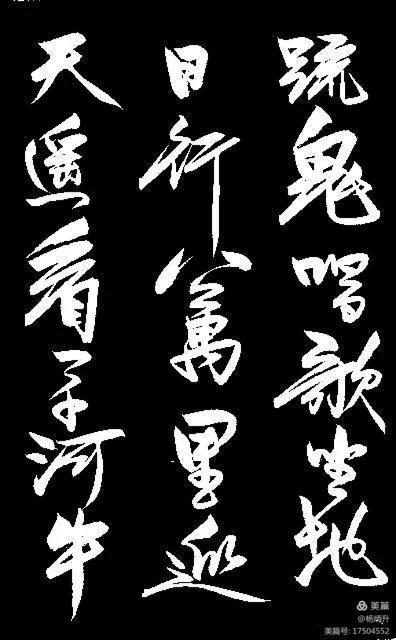 疏鬼唱歌坐地
日行八萬里巡
天遥看一千河牛
美篇
@杨炳升
美篇号: 17504552